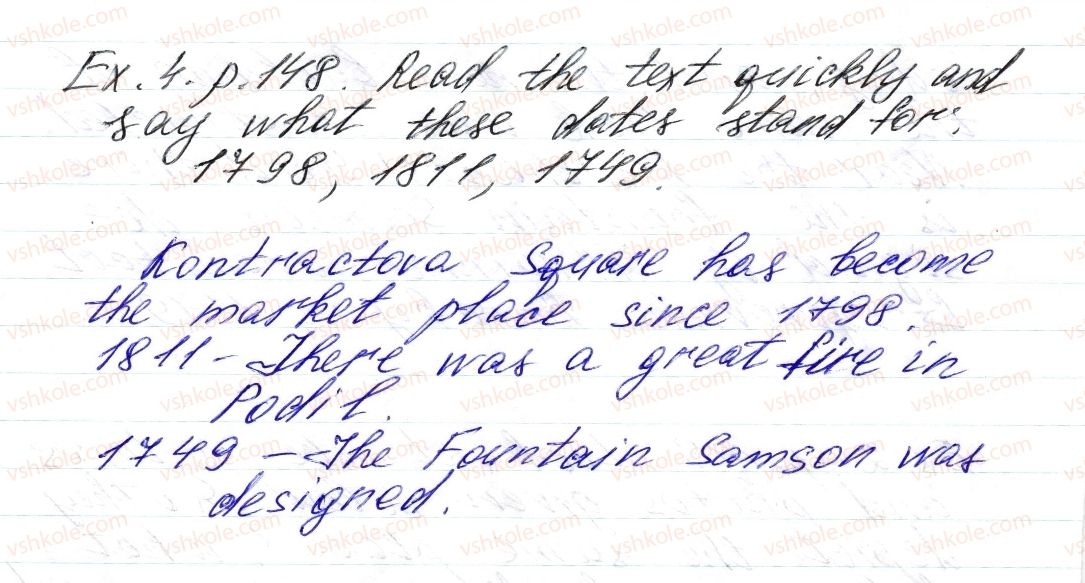 Ex. 4. p. 148. Read the text quickly and
say what these dates stand for:
1798, 1811, 1749.
Kontractova Square has become
the market place since 1798.
1811 - There was a great fire in
Podil.
1749 - The Fountain Samson was
designed.